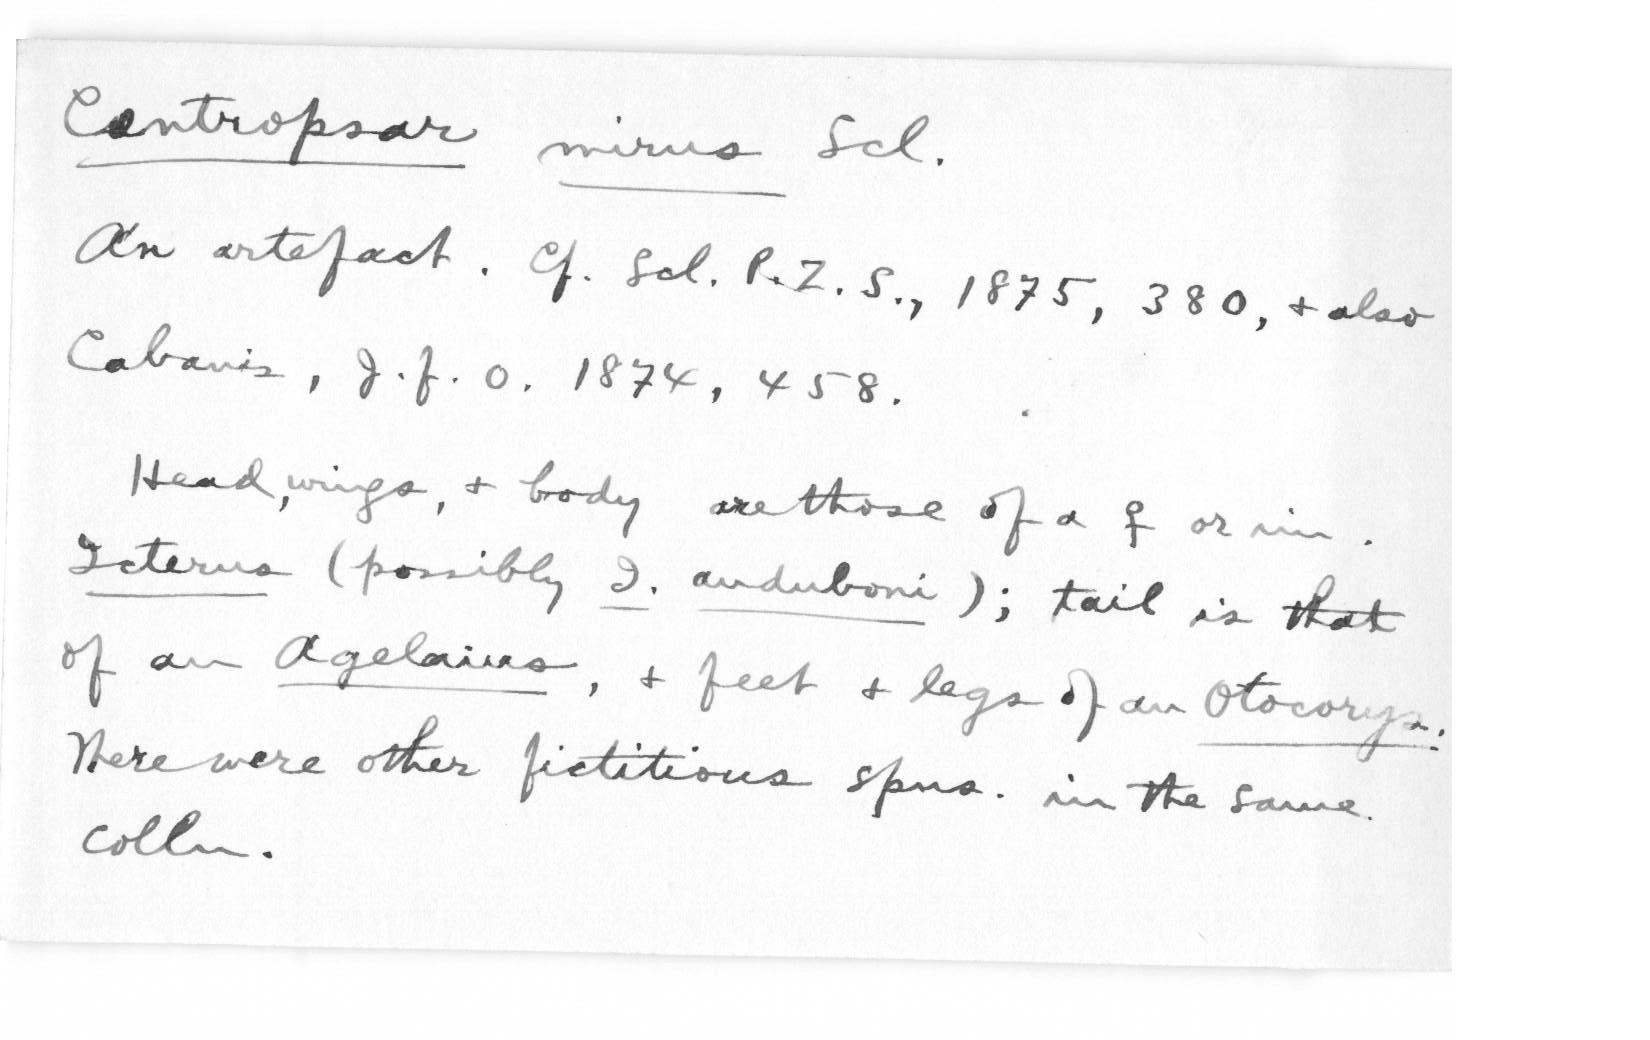 Centropsar mirus Scl.
An artefact. Cf. Scl. P.Z.S., 1875, 380, + also
Cabanis, J.f.O. 1874, 458.
Head, wings, + body are those of a ♀ or im.
Icterus (possibly I. auduboni); tail is that
of an Agelaius, + feet + legs of an Otocorys.
There were other fictitious spns. in the same
colln.